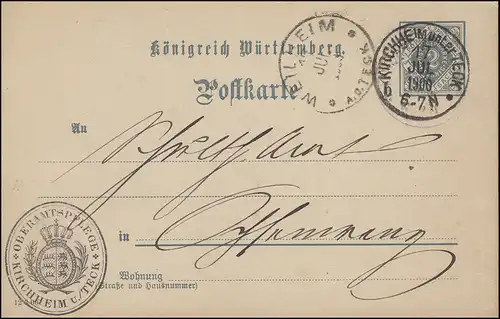 Königreich Württemberg.
Postkarte
WEILHEIM A.D. TECK
JUL
KIRCHHEIM UNTER TECK
JUL
1900
6-7 N
b
An
Schulth.Amt
in
Wohnung
(Straße und Hausnummer)
OBERAMTSPFLEGE KIRCHHEIM U./TECK